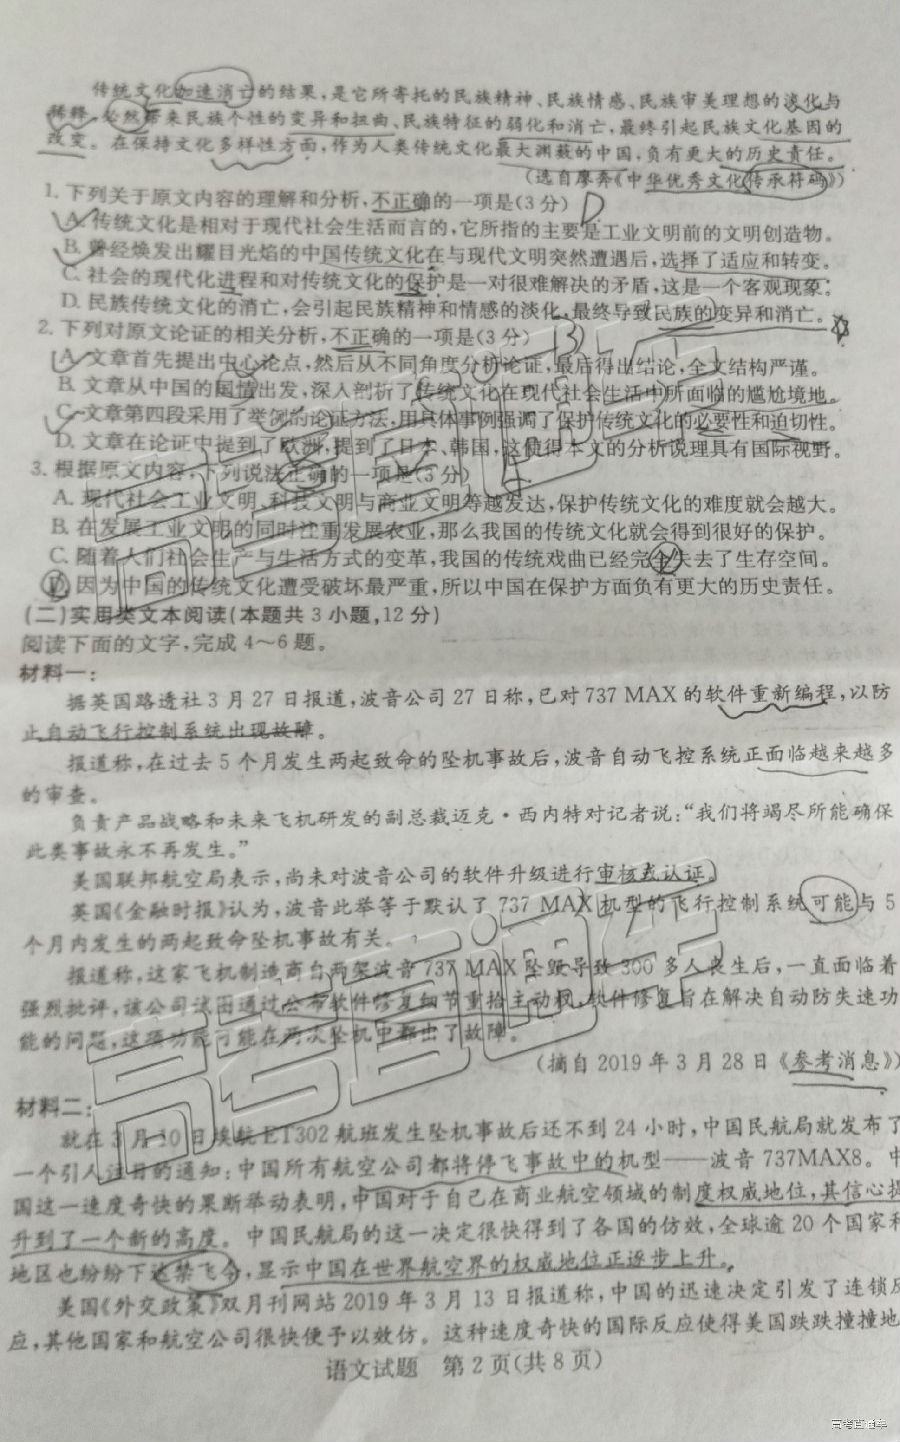 传统文化加速消亡的结果,是它所寄托的民族精神、民族情感、民族审美理想的淡化与
稀释,必然带来民族个性的变异和扭曲、民族特征的弱化和消亡,最终引起民族文化基因的
改变。在保持文化多样性方面,作为人类传统文化最大渊薮的中国,负有更大的历史责任。
(选自廖奔《中华优秀文化传承符码》)
1. 下列关于原文内容的理解和分析,不正确的一项是(3分) D
A. 传统文化是相对于现代社会生活而言的,它所指的主要是工业文明前的文明创造物。
B. 曾经焕发出耀目光焰的中国传统文化在与现代文明突然遭遇后,选择了适应和转变。
C. 社会的现代化进程和对传统文化的保护是一对很难解决的矛盾,这是一个客观现象。
D. 民族传统文化的消亡,会引起民族精神和情感的淡化,最终导致民族的变异和消亡。
2. 下列对原文论证的相关分析,不正确的一项是(3分) B
A. 文章首先提出中心论点,然后从不同角度分析论证,最后得出结论,全文结构严谨。
B. 文章从中国的国情出发,深入剖析了传统文化在现代社会生活中所面临的尴尬境地。
C. 文章第四段采用了举例的论证方法,用具体事例强调了保护传统文化的必要性和迫切性。
D. 文章在论证中提到了欧洲,提到了日本、韩国,这使得本文的分析说理具有国际视野。
3. 根据原文内容,下列说法正确的一项是(3分)
A. 现代社会工业文明、科技文明与商业文明等越发达,保护传统文化的难度就会越大。
B. 在发展工业文明的同时注重发展农业,那么我国的传统文化就会得到很好的保护。
C. 随着人们社会生产与生活方式的变革,我国的传统戏曲已经完全失去了生存空间。
D. 因为中国的传统文化遭受破坏最严重,所以中国在保护方面负有更大的历史责任。
(二)实用类文本阅读(本题共3小题,12分)
阅读下面的文字,完成4～6题。
材料一:
据英国路透社3月27日报道,波音公司27日称,已对737 MAX的软件重新编程,以防
止自动飞行控制系统出现故障。
报道称,在过去5个月发生两起致命的坠机事故后,波音自动飞控系统正面临越来越多
的审查。
负责产品战略和未来飞机研发的副总裁迈克·西内特对记者说:“我们将竭尽所能确保
此类事故永不再发生。”
美国联邦航空局表示,尚未对波音公司的软件升级进行审核或认证。
英国《金融时报》认为,波音此举等于默认了737 MAX机型的飞行控制系统可能与5
个月内发生的两起致命坠机事故有关。
报道称,这家飞机制造商自两架波音737 MAX坠毁导致300多人丧生后,一直面临着
强烈批评,该公司试图通过公布软件修复细节重拾主动权,软件修复旨在解决自动防失速功
能的问题,这项功能可能在两次坠机中都出了故障。
(摘自2019年3月28日《参考消息》)
材料二:
就在3月10日埃航ET302航班发生坠机事故后还不到24小时,中国民航局就发布了
一个引人注目的通知:中国所有航空公司都将停飞事故中的机型——波音737MAX8。中
国这一速度奇快的果断举动表明,中国对于自己在商业航空领域的制度权威地位,其信心提
升到了一个新的高度。中国民航局的这一决定很快得到了各国的仿效,全球逾20个国家和
地区也纷纷下达禁飞令,显示中国在世界航空界的权威地位正逐步上升。
美国《外交政策》双月刊网站2019年3月13日报道称,中国的迅速决定引发了连锁反
应,其他国家和航空公司很快便予以效仿。这种速度奇快的国际反应使得美国跌跌撞撞地
语文试题 第2页(共8页)
高考直通车
高考直通车
高考直通车